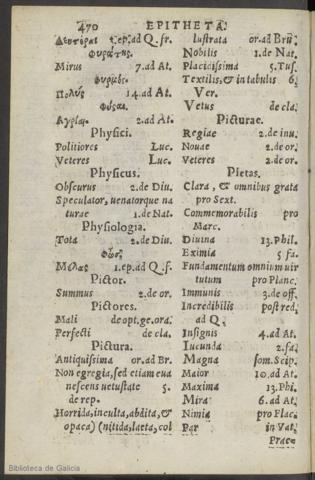 470 EPITHETA.
Δευτέραι 1.ep. ad Q. fr.
Mirus 7. ad At.
Πολὺς 14. ad At.
2. ad At.
Physici.
Politiores Luc.
Veteres Luc.
Physicus.
Obscurus 2. de Diu.
Speculator, uenatorque na
turae 1. de Nat.
Physiologia.
Tota 2. de Diu.
Μέλας 1. ep. ad Q. f.
Pictor.
Summus 2. de or.
Pictores.
Mali de opt. ge. ora.
Perfecti de cla.
Pictura.
Antiquissima or. ad Br.
Non egregia, sed etiam eua
nescens uetustate 5.
de rep.
Horrida, inculta, abdita, &
opaca) (nitida, laeta, col
lustrata or. ad Bru.
Nobilis 1. de Nat.
Placidissima 5. Tus.
Textilis, & in tabulis 6.
Ver.
Vetus de cla.
Picturae.
Regiae 2. de inu.
Nouae 2. de or.
Veteres 2. de or.
Pietas.
Clara, & omnibus grata
pro Sext.
Commemorabilis pro
Marc.
Diuina 13. Phil.
Eximia 5 fa.
Fundamentum omnium uir
tutum pro Planc.
Immunis 3. de off.
Incredibilis post red.
ad Q.
Insignis 4. ad At.
Iucunda 2. fa.
Magna som. Scip.
Maior 10. ad At.
Maxima 13. Phi.
Mira 6. ad At.
Nimia pro Flac.
Par in Vat.
Prae-
Biblioteca de Galicia